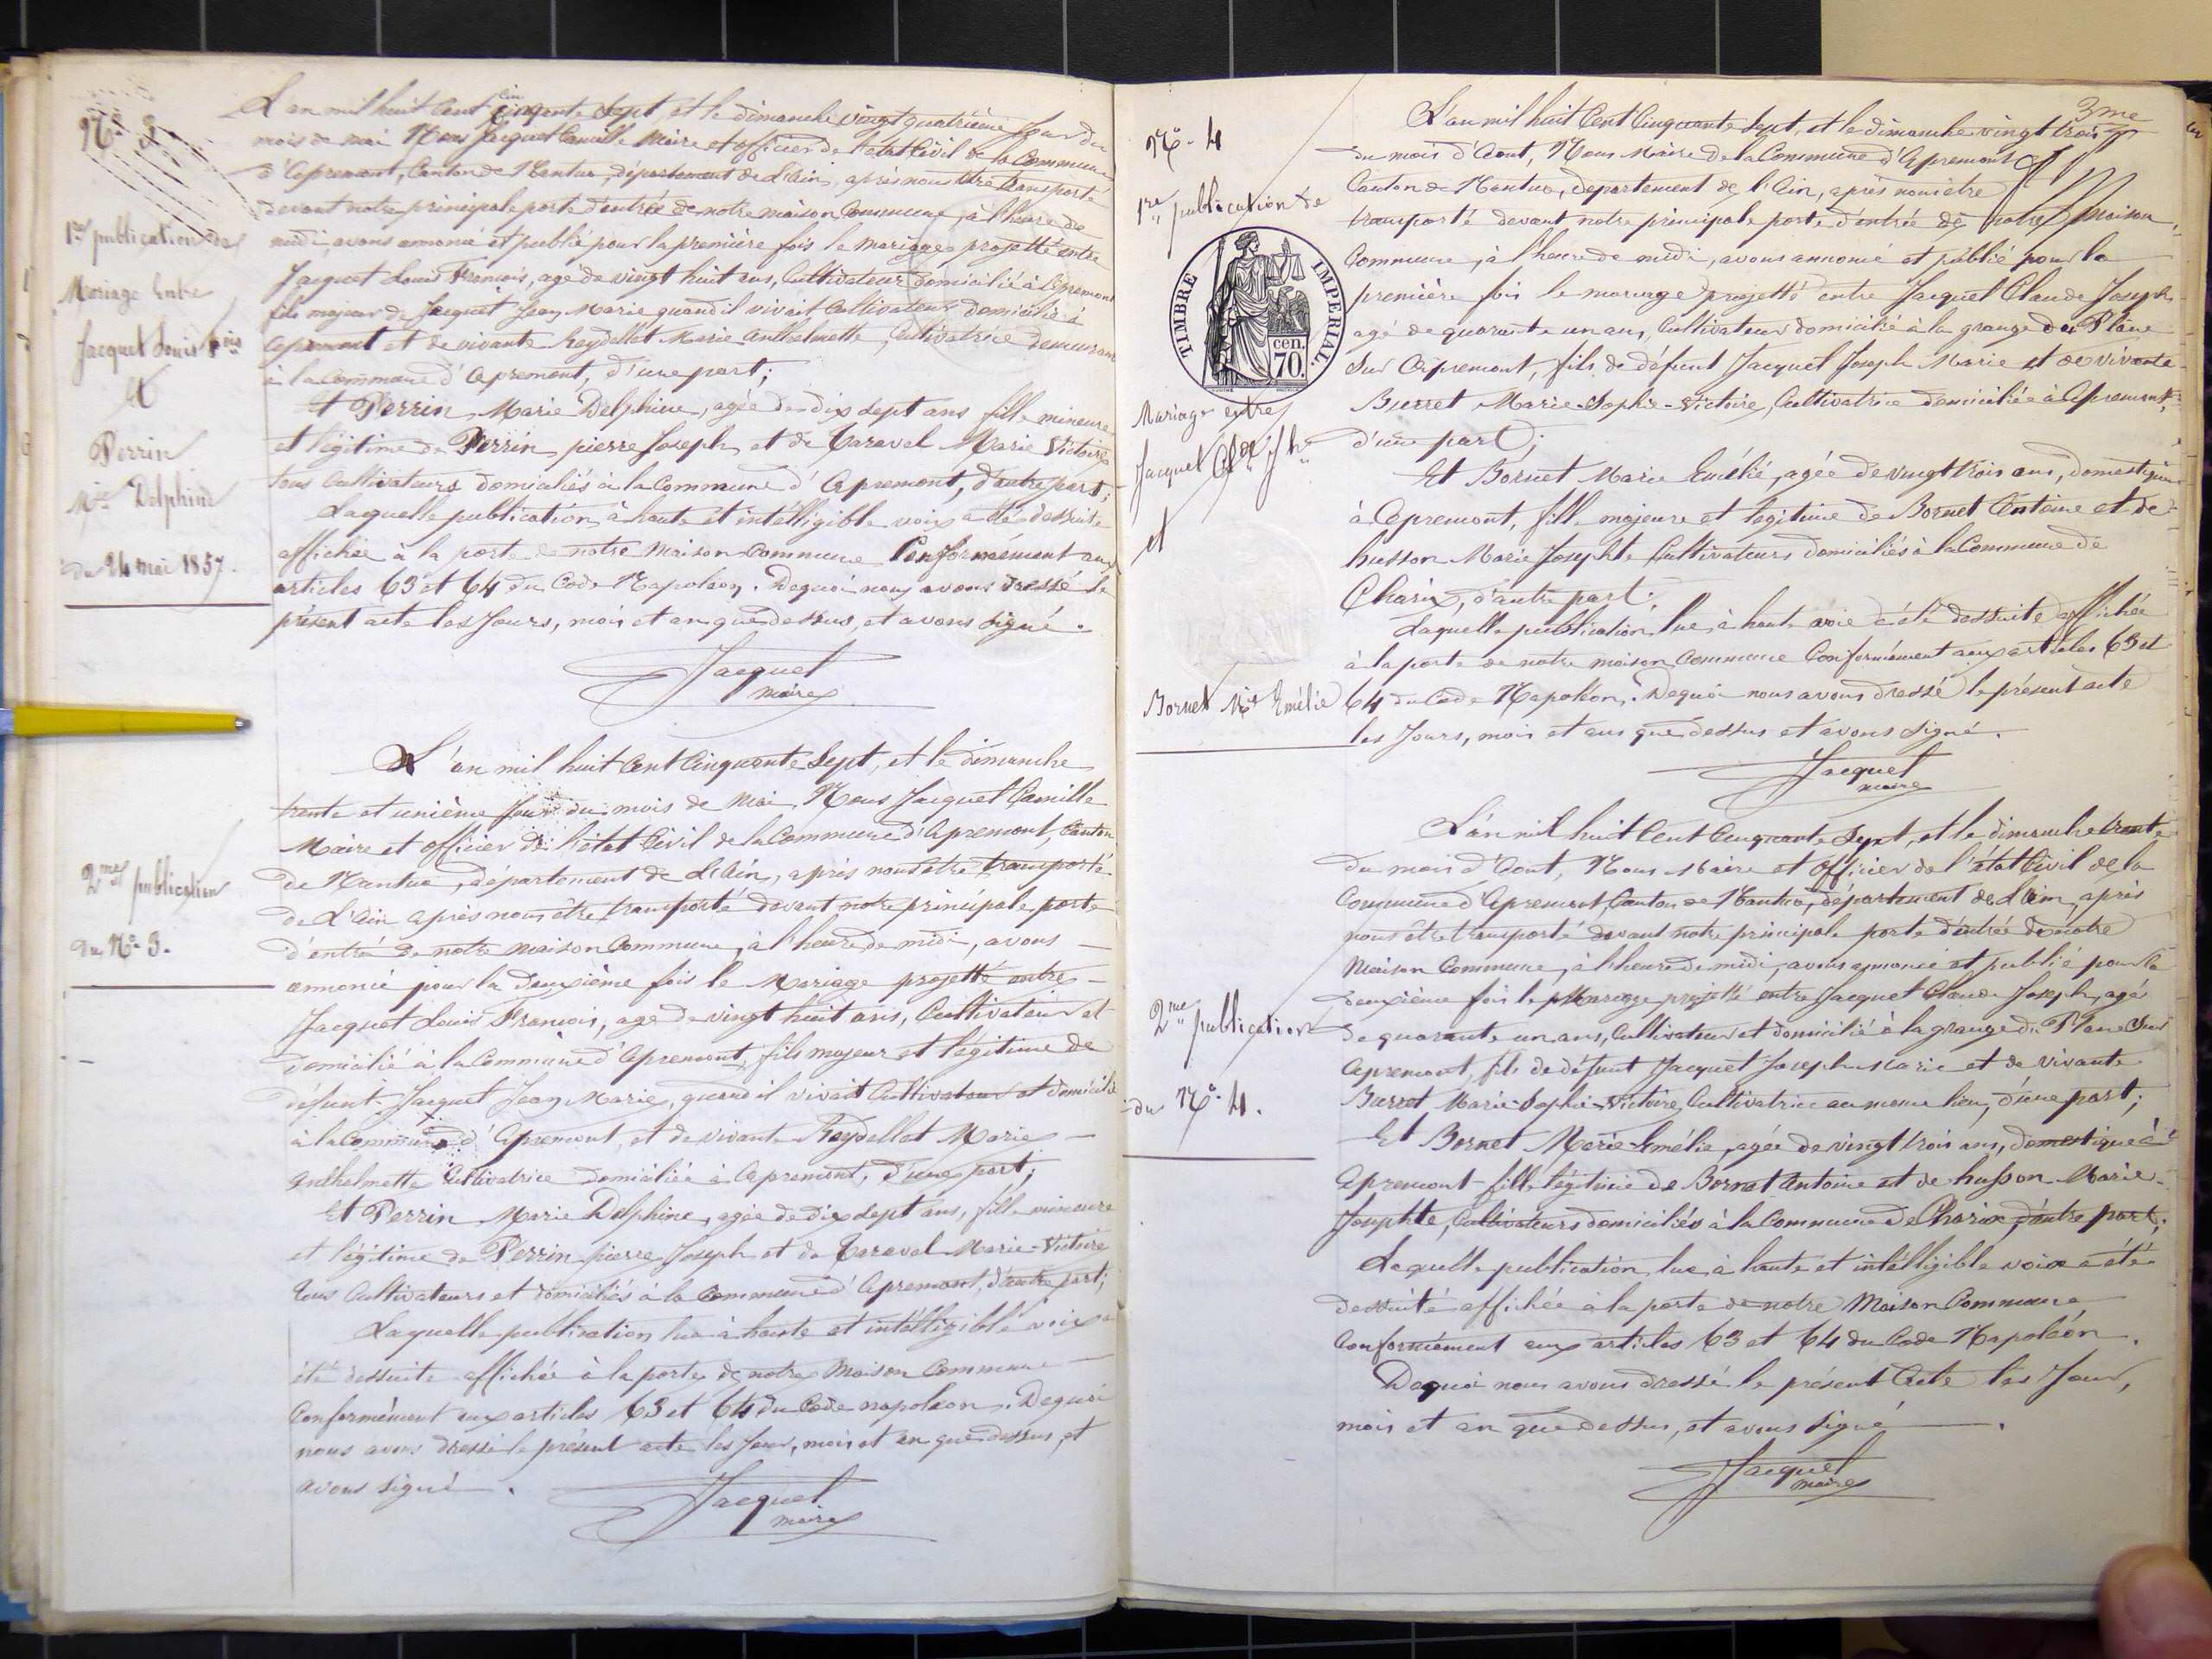 N° 3
1re publication de
Mariage entre
Jacquet Louis fcois
et
Perrin
Mie Delphine
du 24 mai 1857.
L'an mil huit Cent Cinquante Sept, et le dimanche vingt quatrième Jour du
mois de mai Nous Jacquet Camille Maire et officier de l'état Civil de la Commune
d'Apremont, Canton de Nantua, département de L'Ain, après nous être transporté
devant notre principale porte d'entrée de notre maison Commune, à l'heure de
midi, avons annoncé et publié pour la première fois le mariage projetté entre
Jacquet Louis François, agé de vingt huit ans, Cultivateur domicilié à Apremont
fils majeur de Jacquet Jean Marie quand il vivait Cultivateur domicilié à
Apremont et de vivante Reydellet Marie Anthelmette, Cultivatrice demeurant
à la Commune d'Apremont, d'une part;
Et Perrin Marie Delphine, agée de dix sept ans fille mineure
et légitime de Perrin pierre Joseph et de Caraval Marie Victoire
tous Cultivateurs domiciliés à la Commune d'Apremont, d'autre part;
Laquelle publication à haute et intélligible voix a été dessuite
affichée à la porte de notre Maison Commune Conformément aux
articles 63 et 64 du Code Napoléon. Dequoi nous avons dressé le
présent acte les Jours, mois et an que dessus, et avons signé.
Jacquet
maire
2me publication
du N° 3.
L'an mil huit Cent Cinquante Sept, et le dimanche
trente et unième Jour du mois de Mai, Nous Jacquet Camille
Maire et officier de l'état Civil de la Commune d'Apremont, Canton
de Nantua, département de L'Ain, après nous être transporté
de L'Ain après nous être transporté devant notre principale porte
d'entrée de notre maison Commune, à l'heure de midi, avons
annoncé pour la deuxième fois le Mariage projetté entre
Jacquet Louis François, agé de vingt huit ans, Cultivateur et
domicilié à la Commune d'Apremont, fils majeur et légitime de
défunt Jacquet Jean Marie, quand il vivait Cultivateur et domicilié
à la Commune d'Apremont, et de vivante Reydellet Marie
Anthelmette Cultivatrice domiciliée à Apremont, d'une part;
Et Perrin Marie Delphine, agée de dix sept ans, fille mineure
et légitime de Perrin pierre Joseph et de Caraval Marie-Victoire
tous Cultivateurs et domiciliés à la Commune d'Apremont, d'autre part;
Laquelle publication lue à haute et intélligible voix a
été dessuite affichée à la porte de notre Maison Commune
Conformément aux articles 63 et 64 du Code napoléon. Dequoi
nous avons dressé le présent acte les Jour, mois et an que dessus, et
avons signé.
Jacquet
maire
3me
N° 4
1re publication de
TIMBRE IMPERIAL.
cen.
70.
Mariage entre
Jacquet Cde Jh
et
Bornet Mie Emélie
L'an mil huit Cent Cinquante Sept, et le dimanche vingt trois
du mois d'Aout, Nous Maire de la Commune d'Apremont
Canton de Nantua, departement de l'Ain, après nous être
transporté devant notre principale porte d'entrée de notre maison
Commune, à l'heure de midi, avons annoncé et publié pour la
première fois le mariage projetté entre Jacquet Claude Joseph
agé de quarante un ans, Cultivateur domicilié à la grange du Plane
Sur Apremont, fils de défunt Jacquet Joseph Marie et de vivante
Burret Marie-Sophie-Victoire, Cultivatrice domiciliée à Apremont,
d'une part;
Et Bornet Marie Emélie, agée de vingt trois ans, domestique
à Apremont, fille majeure et legitime de Bornet Antoine et de
husson Marie Josephte Cultivateurs domiciliés à la Commune de
Charix, d'autre part;
Laquelle publication lue, à haute voie a été dessuite affichée
à la porte de notre maison Commune Conformément aux articles 63 et
64 du Code Napoléon. Dequoi nous avons dressé le présent acte
les Jours, mois et ans que dessus et avons signé.
Jacquet
maire
2me publication
du N° 4.
L'an mil huit Cent Cinquante Sept, et le dimanche trente
du mois d'Aout, Nous Maire et officier de l'état Civil de la
Commune d'Apremont, Canton de Nantua, département de L'Ain, après
nous être transporté devant notre principale porte d'entrée de notre
Maison Commune, à l'heure de midi, avons annoncé et publié pour la
deuxième fois le Mariage projetté entre Jacquet Claude Joseph, agé
de quarante un ans, Cultivateur et domicilié à la grange du Plane Sur
Apremont, fils de défunt Jacquet Joseph Marie et de vivante
Burret Marie-Sophie-Victoire, Cultivatrice au meme lieu, d'une part;
Et Bornet Marie-Emélie, agée de vingt trois ans, domestique à
Apremont fille légitime de Bornet Antoine et de husson Marie-
Josephte, Cultivateurs domiciliés à la Commune de Charix, d'autre part;
Laquelle publication lue à haute et intélligible voix a été
dessuite affichée à la porte de notre Maison Commune,
Conformément aux articles 63 et 64 du Code Napoléon.
Dequoi nous avons dressé le présent Acte les Jour,
mois et an que dessus, et avons signé.
Jacquet
maire